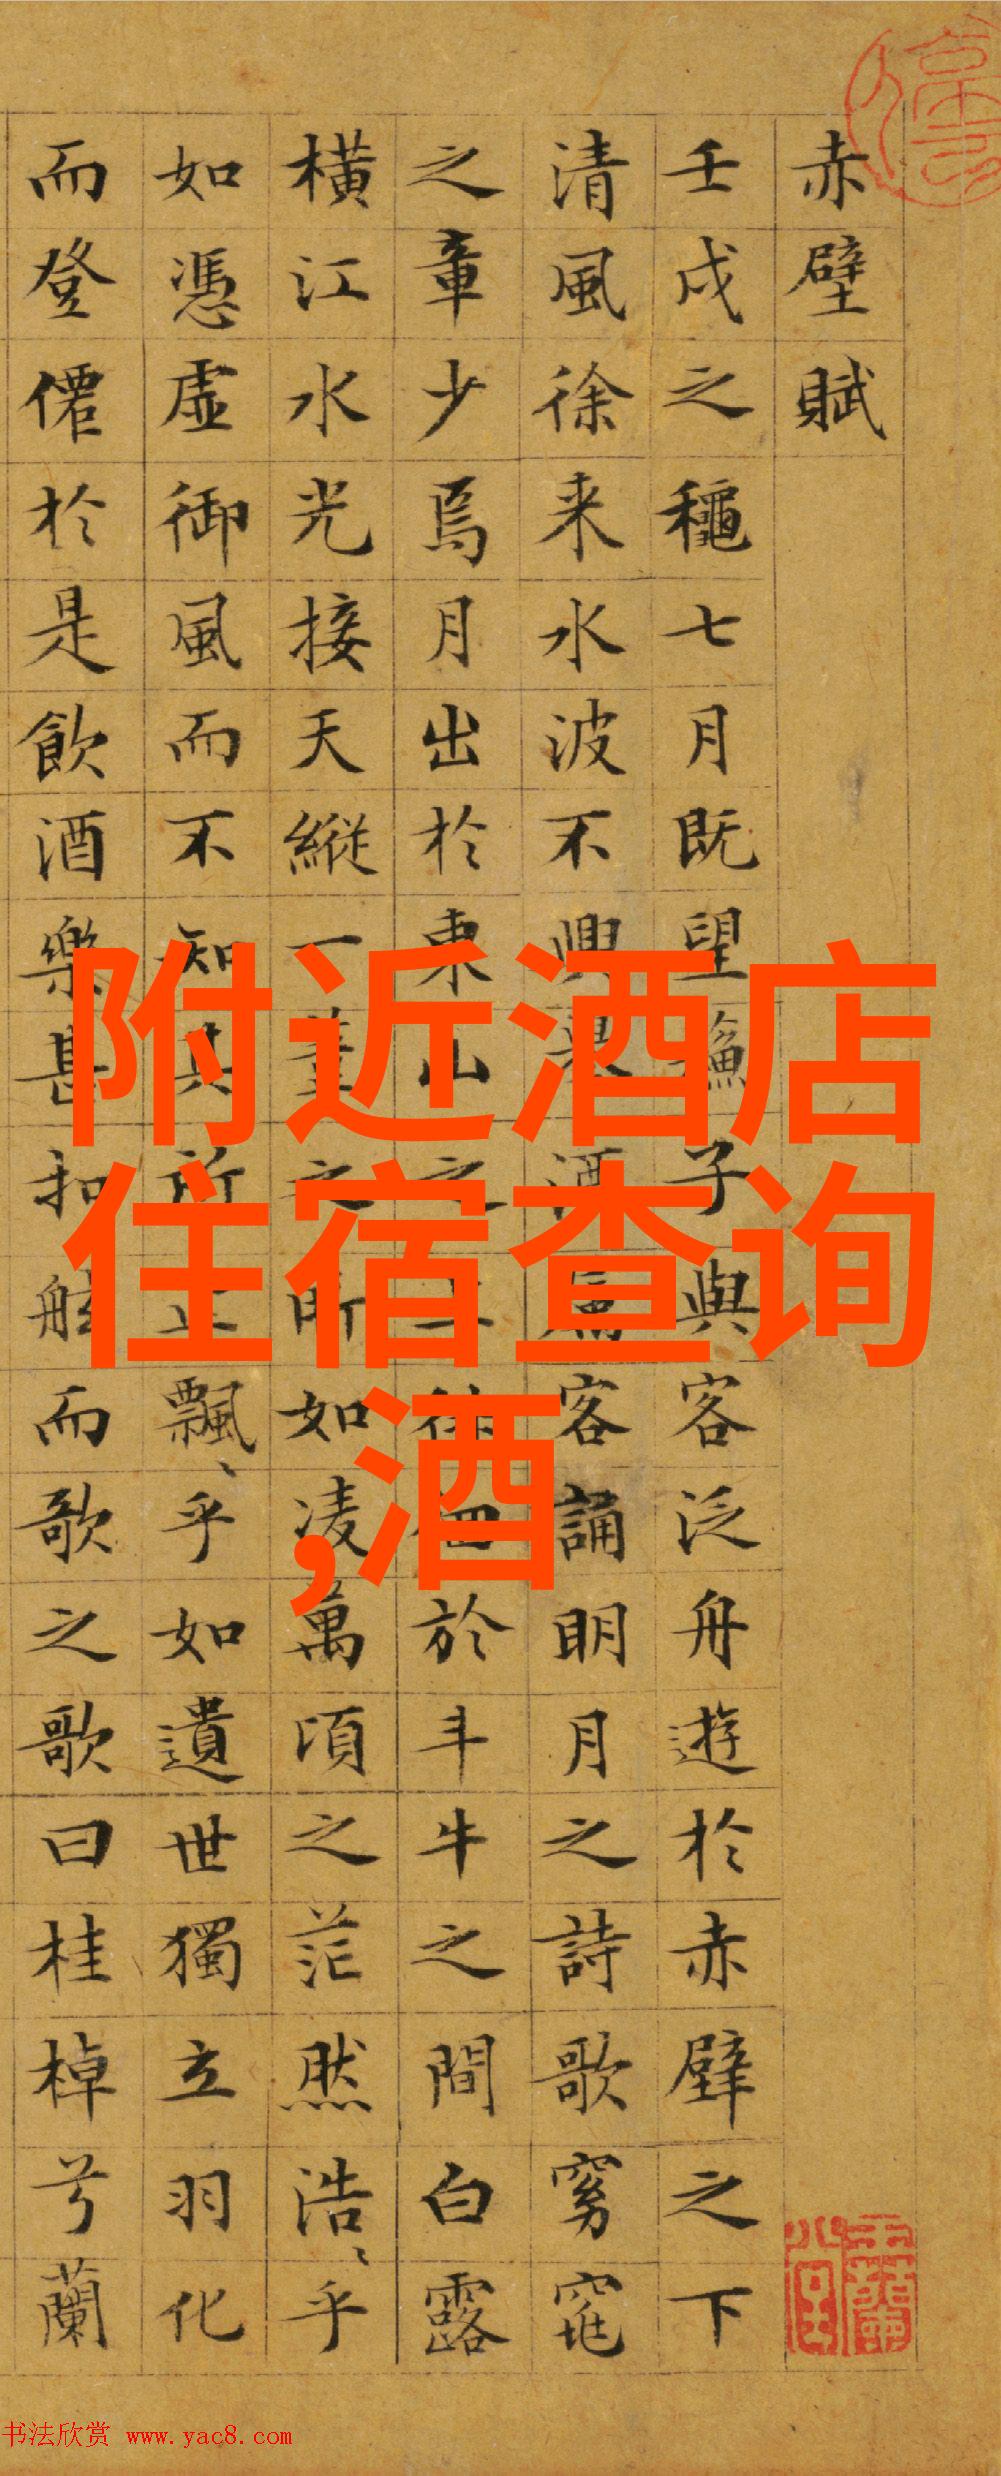 赤壁賦
壬戌之龝七月既望蘇子與客泛舟遊於赤壁之下
清風徐来水波不興舉酒屬客誦明月之詩歌窈窕
之章少焉月出於東山之上徘徊於斗牛之間白露
橫江水光接天縱一葦之所如凌萬頃之茫然浩〻乎
如憑虛御風而不知其所止飄〻乎如遺世獨立羽化
而登僊於是飲酒樂甚扣舷而歌之歌曰桂棹兮蘭
附近酒店
住宿查询
,酒
书法欣赏 www.yac8.com